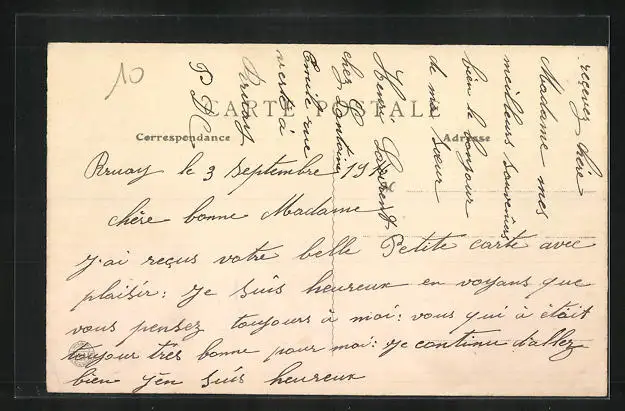 10
CARTE POSTALE
Correspondance
Adresse
Bruay le 3 Septembre 191
chère bonne Madame
J'ai reçus votre belle Petite carte avec
plaisir: Je suis heureux en voyans que
vous pensez toujours à moi: vous qui à était
toujour très bonne pour moi: Je continu d'allez
bien J'en suis heureux
recevez chère
Madame mes
meilleurs souvenirs
bien le bonjour
de ma sœur
Henri Laurent
chez Lantoine
Emile rue
verte à
Bruay
P D C